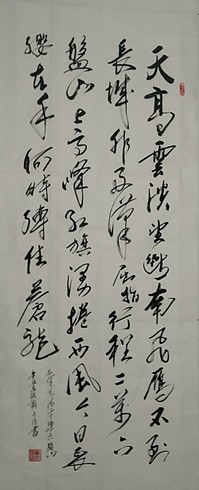 天高雲淡望斷南飛雁不到
長城非好漢屈指行程二万六
盤山上高峰紅旗漫捲西風今日長
纓在手何時縛住蒼龍